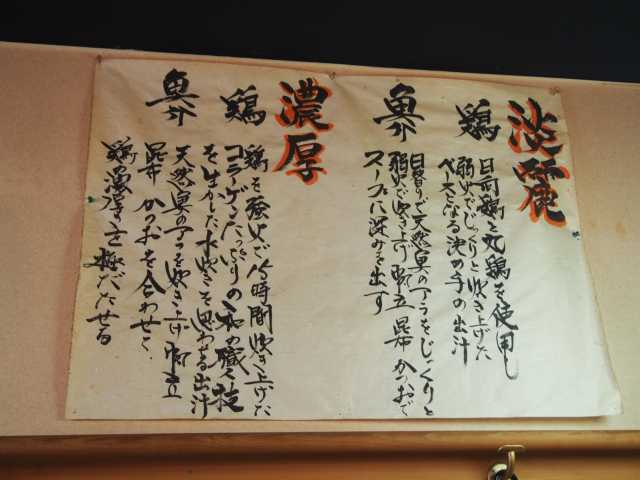 淡麗
鶏
日向鶏と丸鶏を使用し
弱火でじっくりと炊き上げた
ベースとなる決め手の出汁
魚介
日替りで天然魚のアラをじっくりと
弱火で炊き上げ 昆布 かつおで
スープに深みを出す
濃厚
鶏
鶏を強火で 時間炊き上げた
コラーゲンたっぷりの 和の職人技
を生かした水炊きを思わせる出汁
魚介
天然魚のアラを炊き上げ
昆布 かつおを合わせて
鶏 濃厚を 立たせる